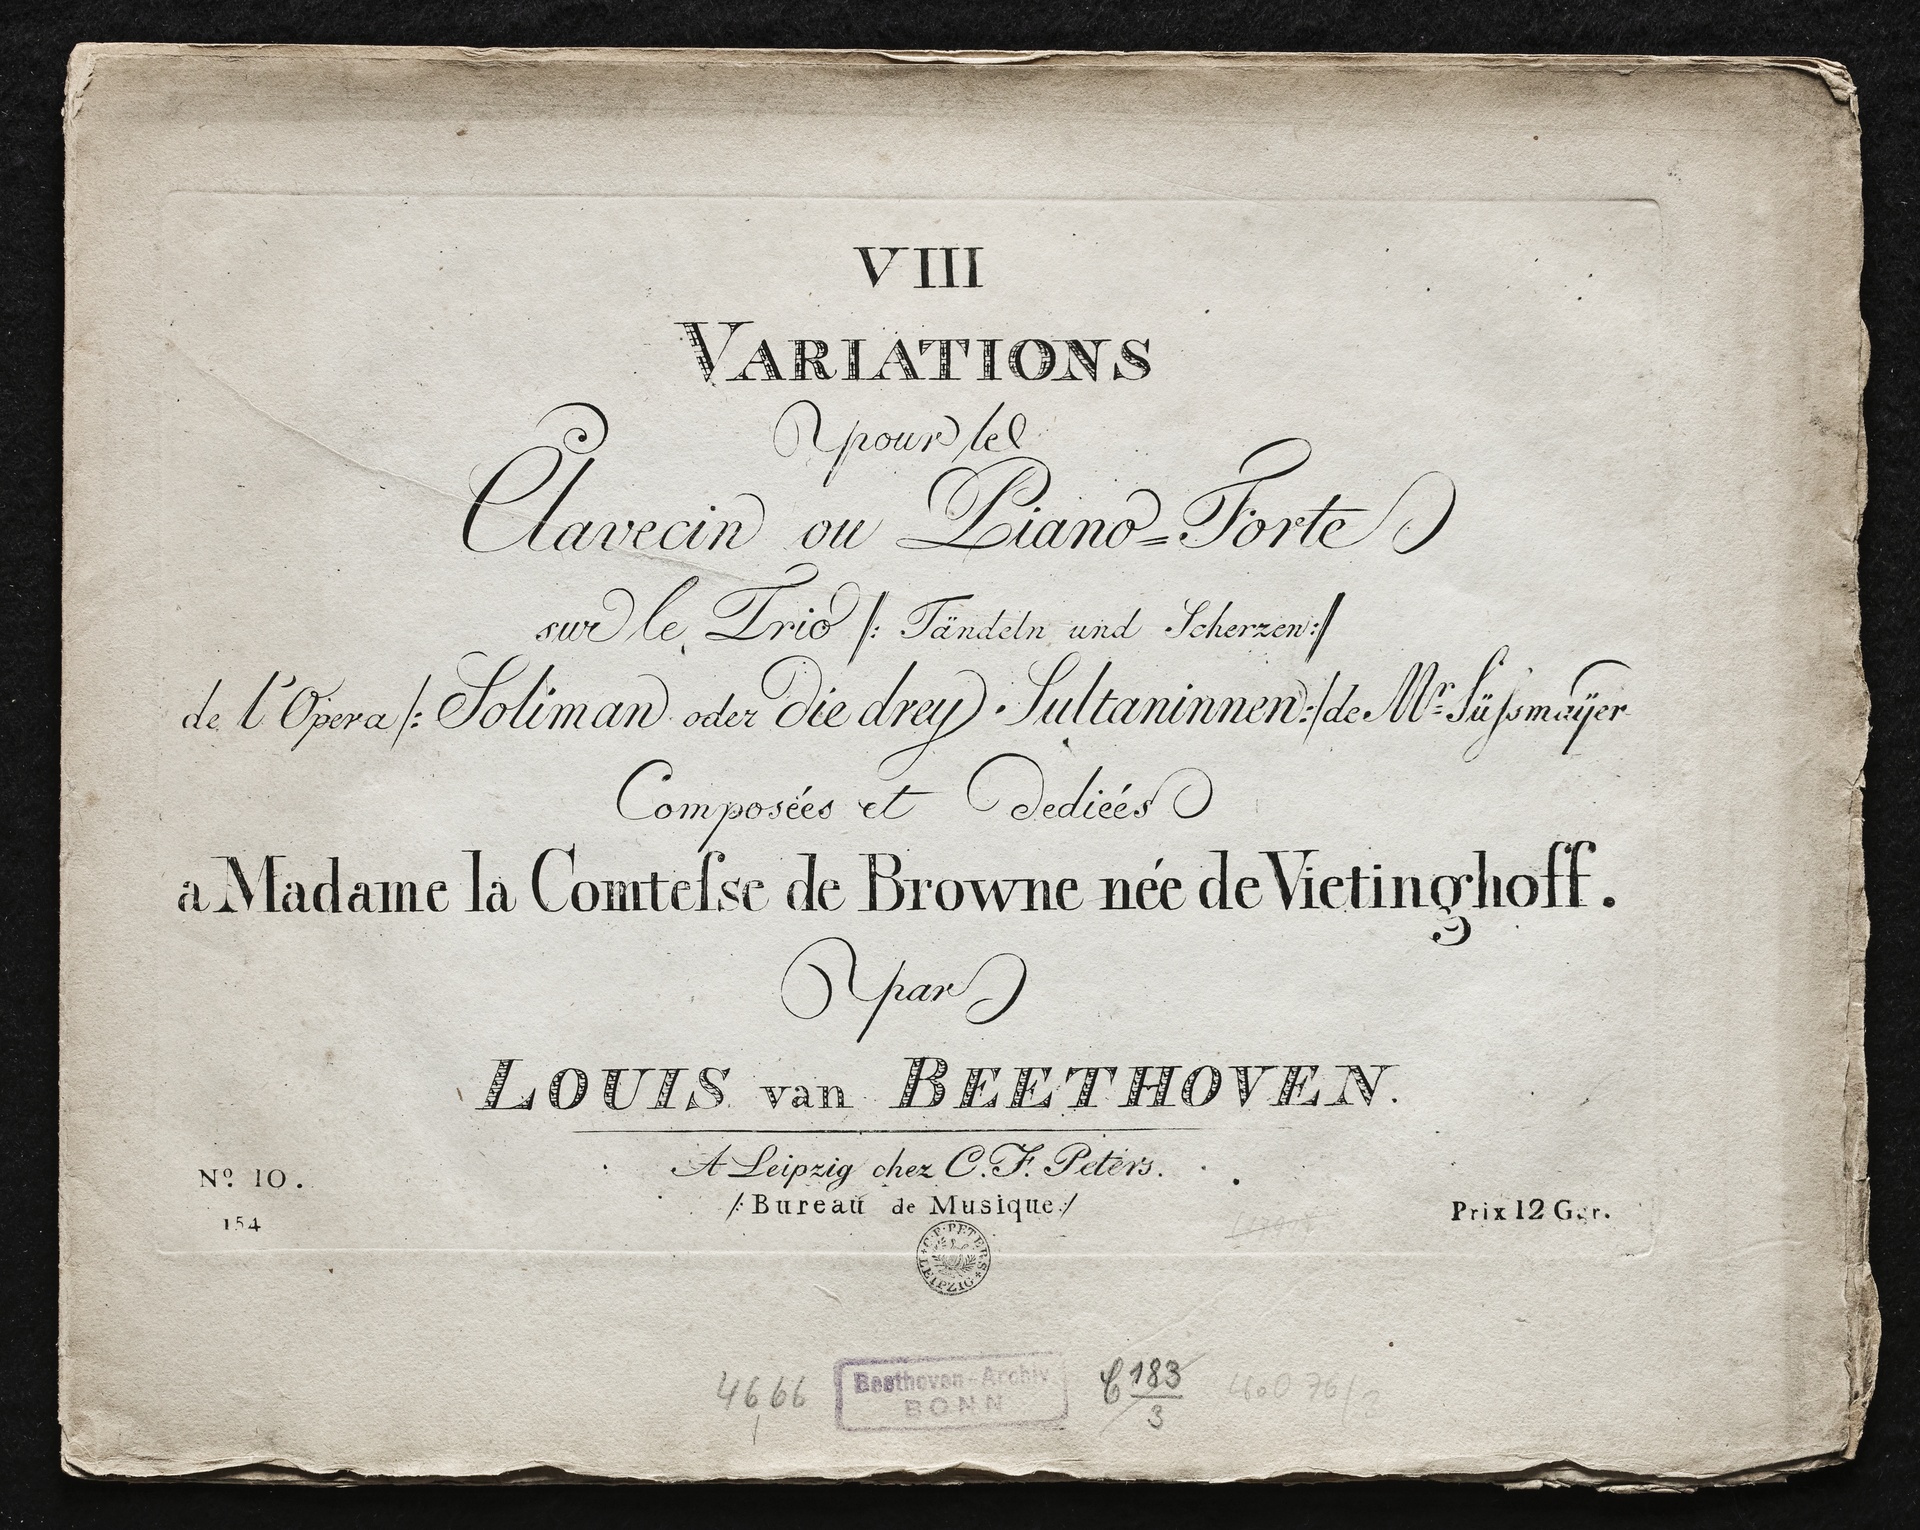 VIII
VARIATIONS
pour le
Clavecin ou Piano=Forte
sur le Trio /: Tändeln und Scherzen:/
de l'Opera /: Soliman oder Die drey Sultaninnen:/ de Mr. Süſsmaÿer
Composées et Dediées
a Madame la Comteſse de Browne née de Vietinghoff.
par
LOUIS van BEETHOVEN.
A Leipzig chez C. F. Peters.
/: Bureau de Musique :/
No. 10.
154
Prix 12 Ggr.
C. F. PETERS LEIPZIG
4666
Beethoven-Archiv
BONN
C 183/3